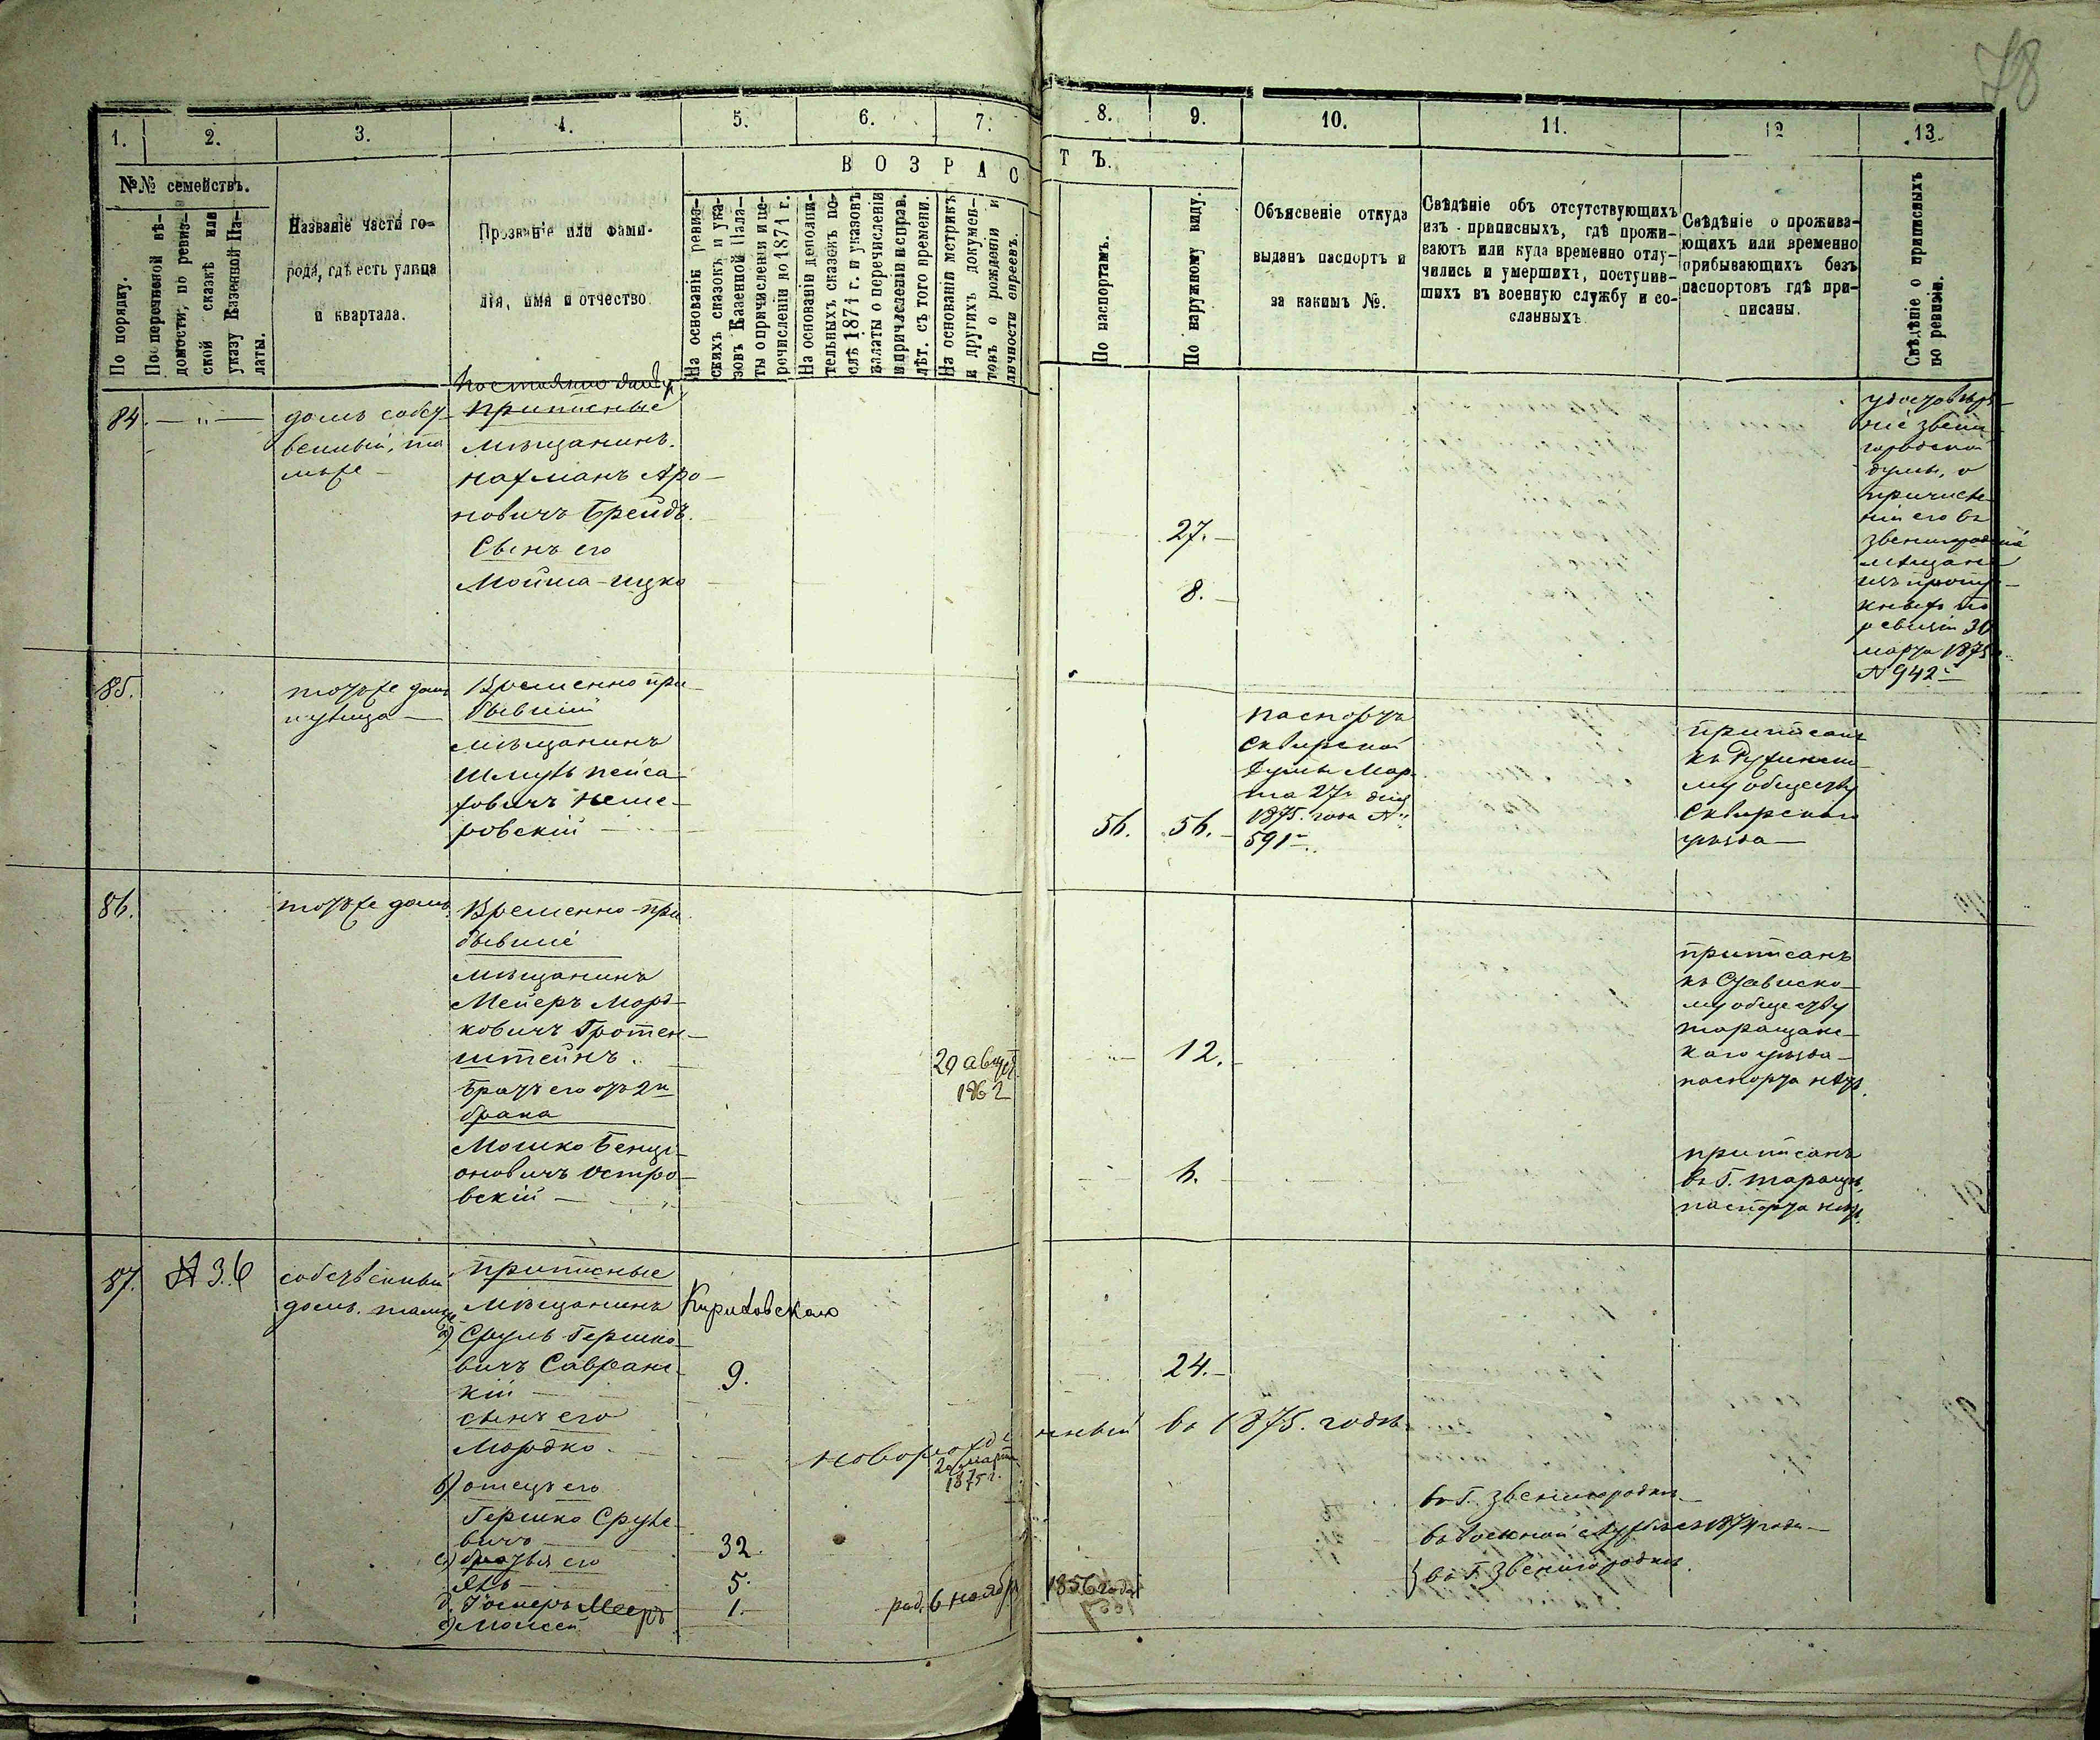 78
1. 2. 3. 4. 5. 6. 7. 8. 9. 10. 11. 12 13.
В О З Р А С Т Ъ.
№№ семействъ.
По порядку.
По перечневой вѣ-
домости, по ревиз-
ской сказкѣ или
указу Казенной Па-
латы.
Названіе части го-
рода, гдѣ есть улица
и квартала.
Прозваніе или фами-
лія, имя и отчество
На основаніи ревиз-
скихъ сказокъ и ука-
зовъ Казенной Пала-
ты о причисленіи и пе-
речисленіи по 1871 г.
На основаніи дополни-
тельныхъ сказокъ по-
слѣ 1871 г. и указовъ
палаты о перечисленіи
и причисленіи исправ.
лѣт. съ того времени.
На основаніи метрикъ
и другихъ докумен-
товъ о рожденіи и
личности евреевъ.
По паспортамъ.
По наружному виду.
Объясненіе откуда
выданъ паспортъ и
за какимъ №.
Свѣдѣніе объ отсутствующихъ
изъ приписныхъ, гдѣ прожи-
ваютъ или куда временно отлу-
чились и умершихъ, поступив-
шихъ въ военную службу и со-
сланныхъ.
Свѣдѣніе о прожива-
ющихъ или временно
прибывающихъ безъ
паспортовъ гдѣ при-
писаны.
Свѣдѣніе о приписныхъ
по ревизіи.
84. — „ —
домъ собст-
венный, та
мъже
приписные
мѣщанинъ
Нахманъ Аро-
новичъ Брейдъ.
Сынъ его
Мойша-Ицко
27.
8.
удостовѣре-
ніе звени
городской
думы, о
причисле-
ніи его въ
звенигородскіе
мѣщане
изъ пропу-
кныхъ по
ревизіи 30
марта 1875
№ 942
85.
тотъже домъ
и улица
Временно при-
бывшій
мѣщанинъ
Шмуль Пейса-
ховичъ Неме-
ровскій
56. 56.
паспортъ
Сквирской
Думы Мар-
та 27 дня
1875. года №
591
приписанъ
къ Ружинско-
му обществу
Сквирскаго
уѣзда
86.
тотъже домъ
Временно-при
бывшіе
мѣщанинъ
Мейеръ Морд-
ковичъ Гротен-
штейнъ.
29 август
1862
12.
приписанъ
къ Стависко-
му обществу
таращанс-
каго уѣзда
паспорта нѣтъ.
Братъ его отъ 2го
брака
Мошко Бенці-
оновичъ Остро-
вскій
6.
приписанъ
въ Г. Таращѣ.
паспорта нѣтъ.
87. № 36
собственный
домъ. тамъже
приписные
мѣщанинъ Кириковскаго
а) Сруль Гершко-
вичъ Савранс-
кій
9. 24.
сынъ его
Мордко.
новорожденный въ 1875. годѣ
20 марта
1875 г.
б) отецъ его
Гершко Сруле-
вичъ
32.
въ Г. Звенигородкѣ
с) братья его
Янъ
5.
въ военной службѣ съ 1874 года
д. Іосперъ Мееръ
1.
род. 6 ноября 1856 года
е) Мойсей
} въ Г. Звенигородкѣ.